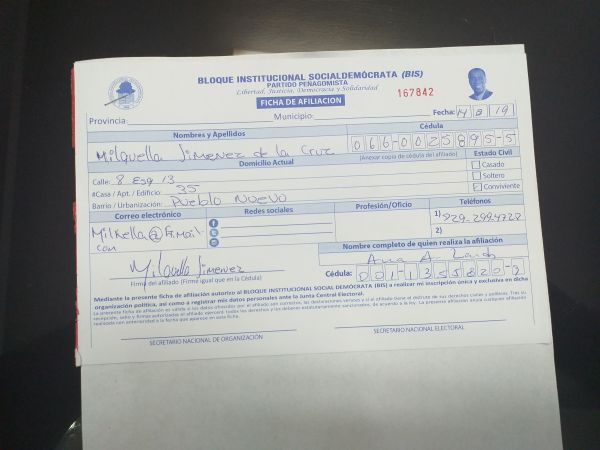 BLOQUE INSTITUCIONAL SOCIALDEMÓCRATA (BIS)
PARTIDO PEÑAGOMISTA
Libertad, Justicia, Democracia y Solidaridad
167842
FICHA DE AFILIACION
Provincia: Municipio: Fecha: 14 8 19
Nombres y Apellidos Cédula
Milquella Jimenez de la Cruz 066-0025895-5
Domicilio Actual (Anexar copia de cédula del afiliado) Estado Civil
Calle: 8 Esq 13 Casado
#Casa / Apt. / Edificio: 35 Soltero
Barrio / Urbanización: Pueblo Nuevo Conviviente
Correo electrónico Redes sociales Profesión/Oficio Teléfonos
Milkella@Gmail 1) 829-2994728
com 2)
Nombre completo de quien realiza la afiliación
Ana A.
Milquella Jimenez Cédula: 001-1355820-2
Firma del afiliado (Firme igual que en la Cédula)
Mediante la presente ficha de afiliación autorizo al BLOQUE INSTITUCIONAL SOCIAL DEMÓCRATA (BIS) a realizar mi inscripción única y exclusiva en dicha
organización política, así como a registrar mis datos personales ante la Junta Central Electoral.
SECRETARIO NACIONAL DE ORGANIZACIÓN SECRETARIO NACIONAL ELECTORAL